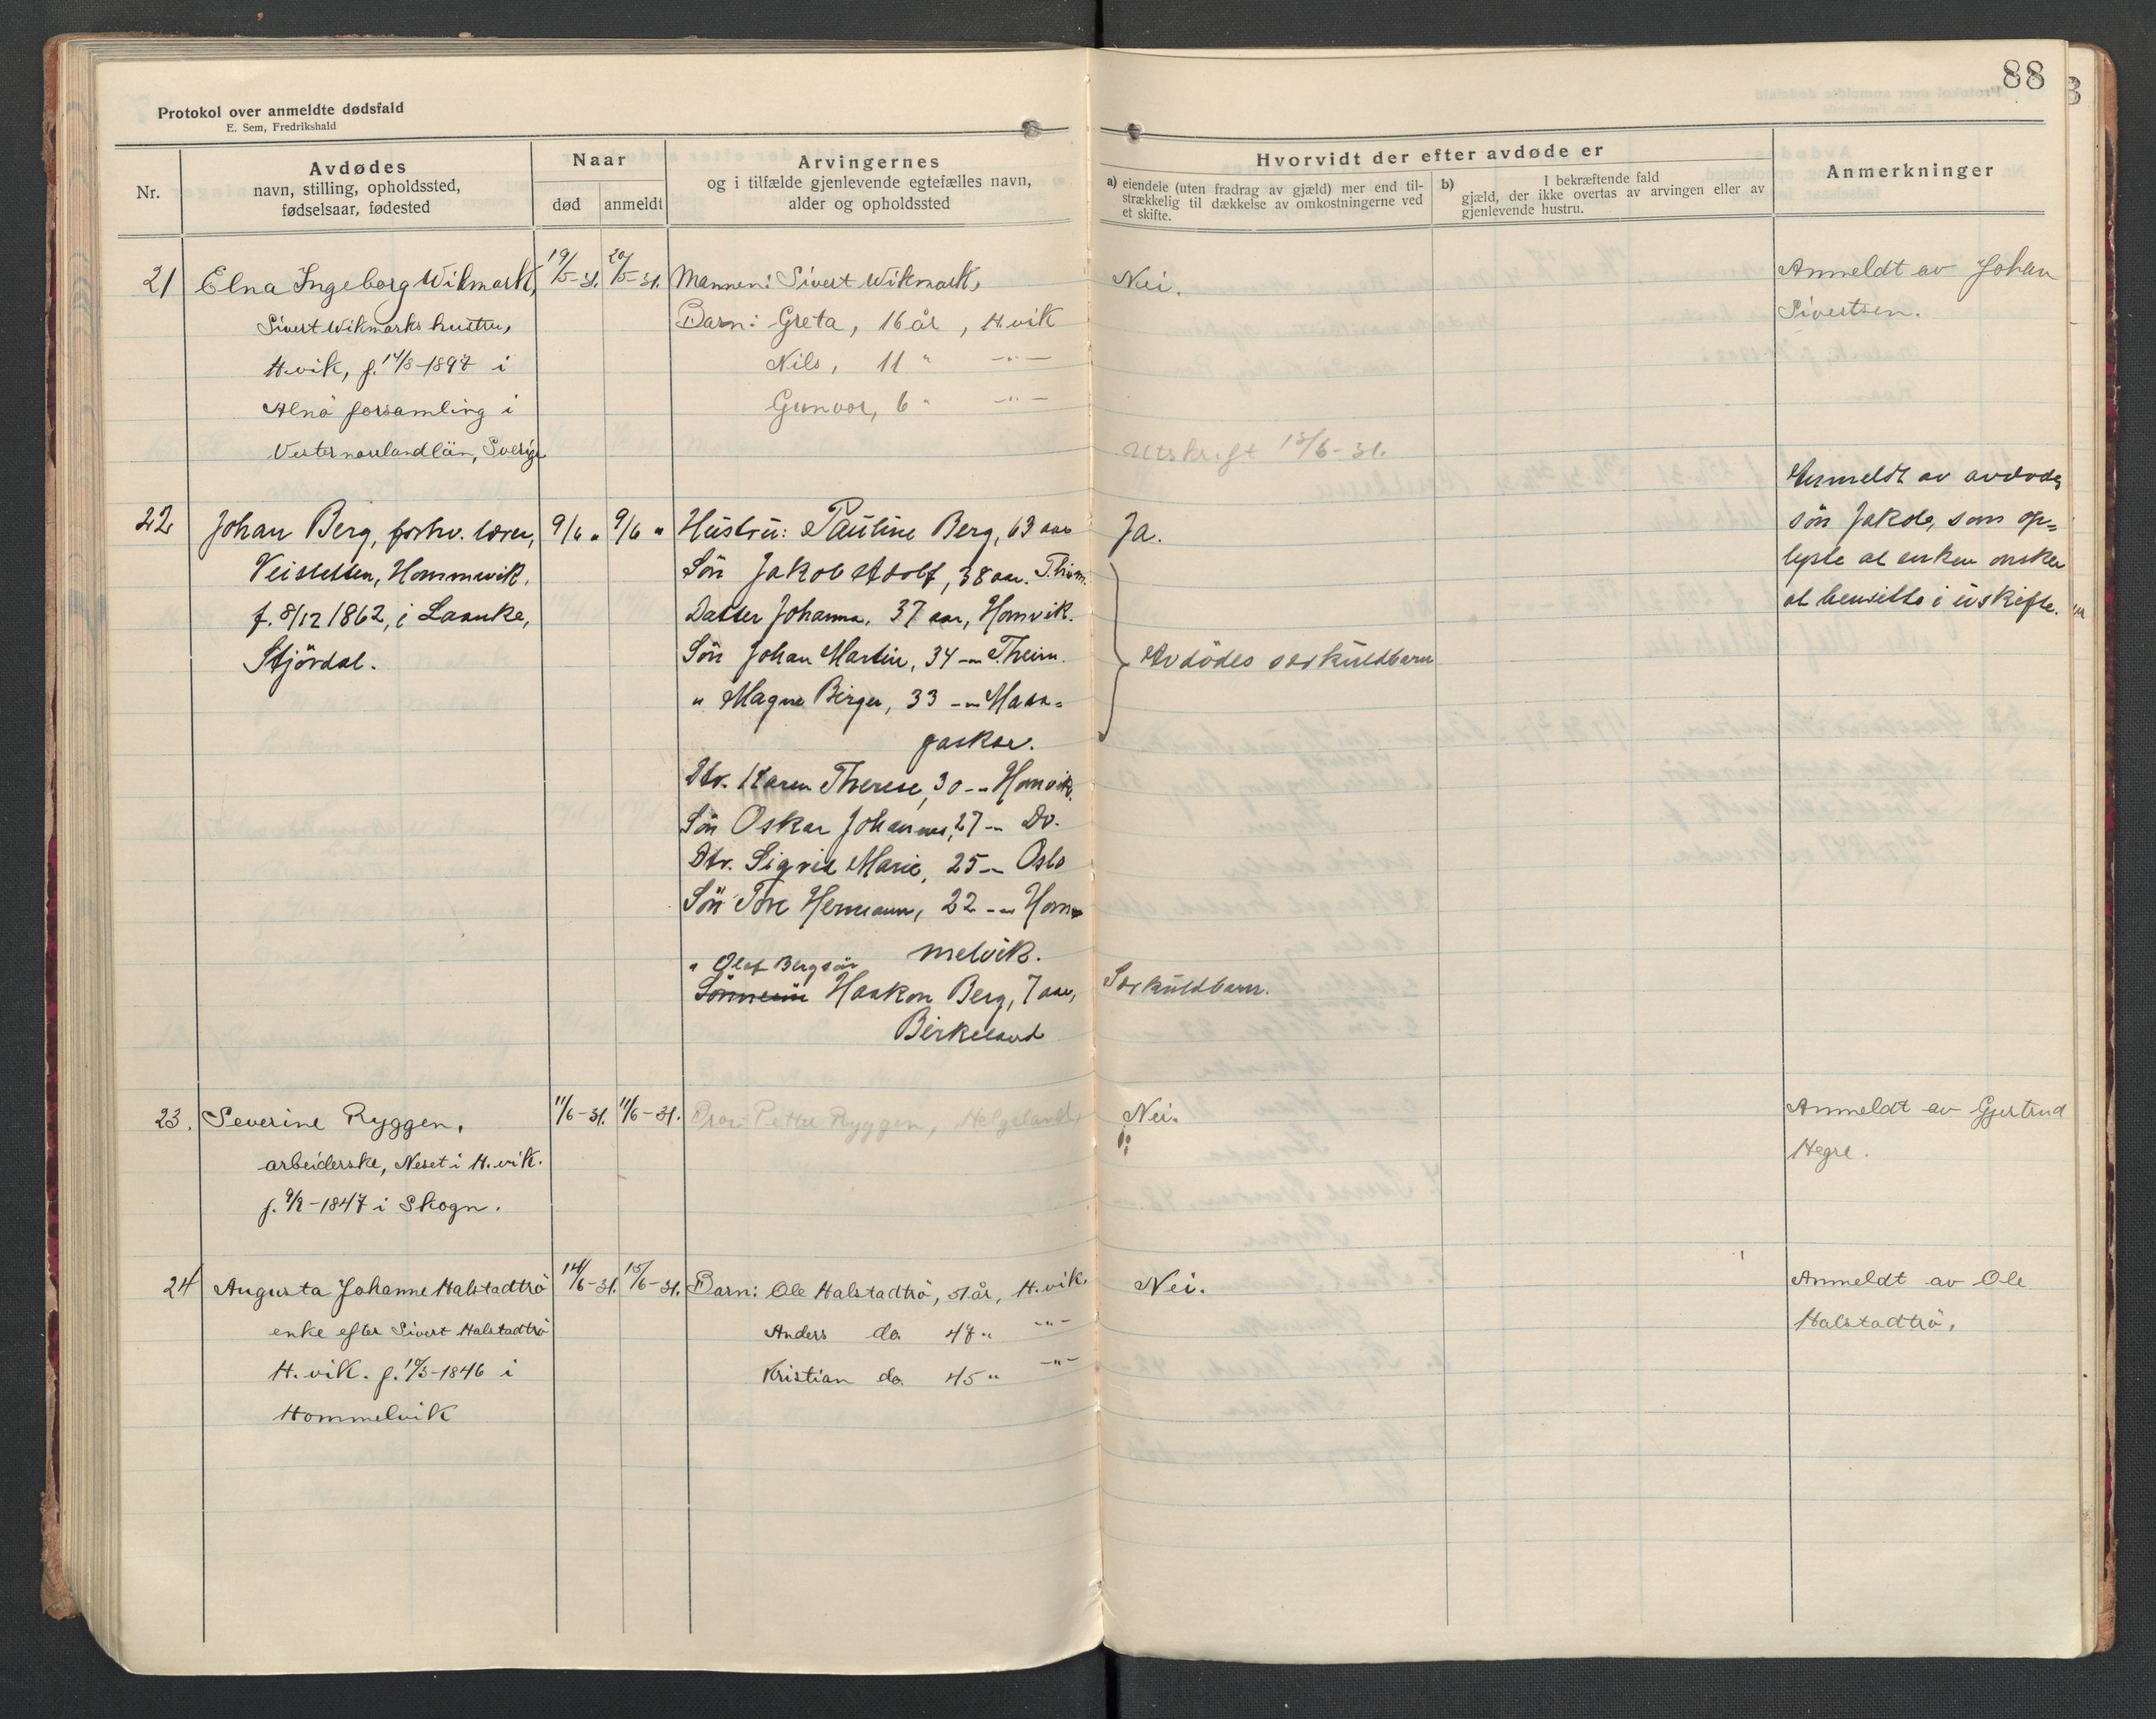 88
Protokol over anmeldte dødsfald
E. Sem, Fredrikshald
Nr.
Avdødes
navn, stilling, opholdssted,
fødselsaar, fødested
Naar
død
anmeldt
Arvingernes
og i tilfælde gjenlevende egtefælles navn,
alder og opholdssted
Hvorvidt der efter avdøde er
a) eiendele (uten fradrag av gjæld) mer end til-
strækkelig til dækkelse av omkostningerne ved
et skifte.
b) I bekræftende fald
gjæld, der ikke overtas av arvingen eller av
gjenlevende hustru.
Anmerkninger
21
Elna Ingeborg Wikmark,
Sivert Wikmarks hustru,
H.vik, f. 14/8-1897 i
Alnö forsamling i
Vesternorrland län, Sverige
19/5-31.
20/5-31.
Mannen: Sivert Wikmark,
Barn: Greta, 16 år, H.vik
Nils, 11 " -"-
Gunvor, 6 " -"-
Nei.
Utskrift 13/6-31.
Anmeldt av Johan
Sivertsen.
22
Johan Berg, forhv. lærer,
Hommelvik,
f. 8/12 1862, i Laanke,
Stjördal.
9/6 "
9/6 "
Hustru: Pauline Berg, 63 aar
Sön Jakob Adolf, 38 aar. Thjem.
Datter Johanna, 37 aar, Homvik.
Sön Johan Martin, 34 -"- Thjem.
" Magne Birger, 33 -"- Mada=
gaskar.
Dtr. Karen Therese, 30 -"- Homvik.
Sön Oskar Johannes, 27 -"- Do.
Dtr. Sigrid Marie, 25 -"- Oslo
Sön Tore Hermann, 22 -"- Hom=
melvik.
" Olaf Bergsön
Sönnesön Haakon Berg, 7 aar,
Birkeland
Ja.
Avdödes særkuldbarn
Særkuldbarn.
Anmeldt av avdödes
sön Jakob, som op=
lyste at enken önsker
at hensitte i uskifte.
23.
Severine Ryggen,
arbeiderske, Neset i H.vik.
f. 9/2-1847 i Skogn.
11/6-31.
11/6-31.
Bror: Petter Ryggen, Helgeland,
Nei.
Anmeldt av Gjertrud
Hegre.
24
Augusta Johanne Halstadtrö
enke efter Sivert Halstadtrö
H.vik. f. 10/3-1846 i
Hommelvik
14/6-31.
15/6-31.
Barn: Ole Halstadtrö, 51 år, H.vik.
Anders do. 47 " -"-
Kristian do. 45 " -"-
Nei.
Anmeldt av Ole
Halstadtrö.